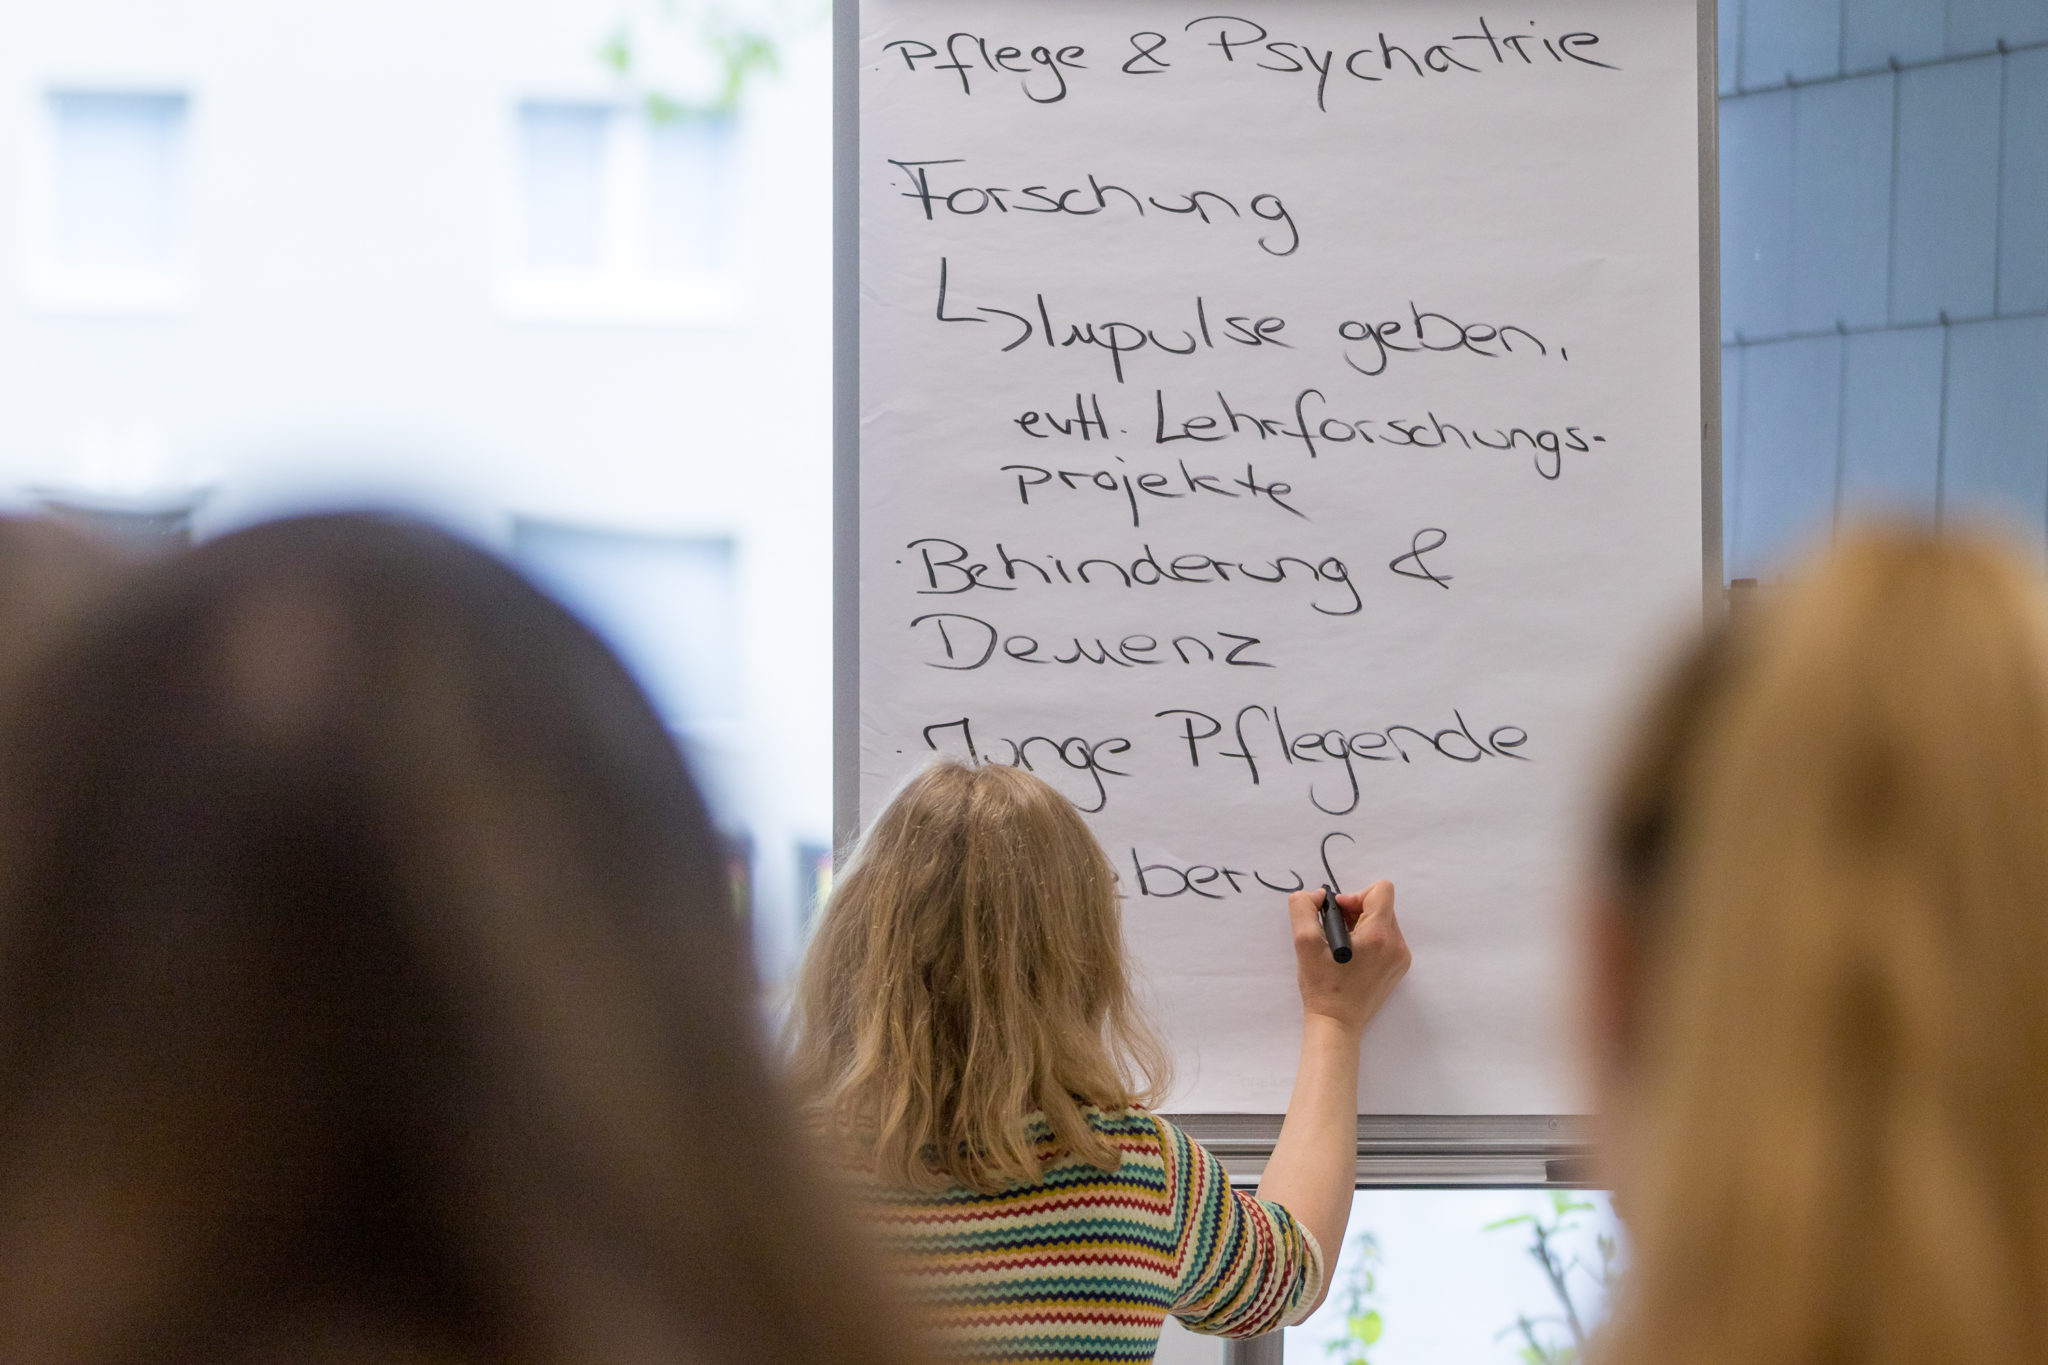 · Pflege & Psychatrie
· Forschung
↳ Impulse geben,
evtl. Lehrforschungs-
projekte
· Behinderung &
Demenz
· Junge Pflegende
beruf